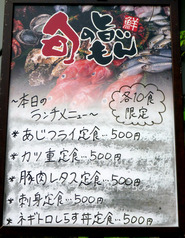 鮮
旬の
～本日の
ランチメニュー～
各10食
限定
* あじフライ定食…500円
* カツ重定食…500円
* 豚肉レタス定食…500円
* 刺身定食…500円
* ネギトロしらす丼定食…500円